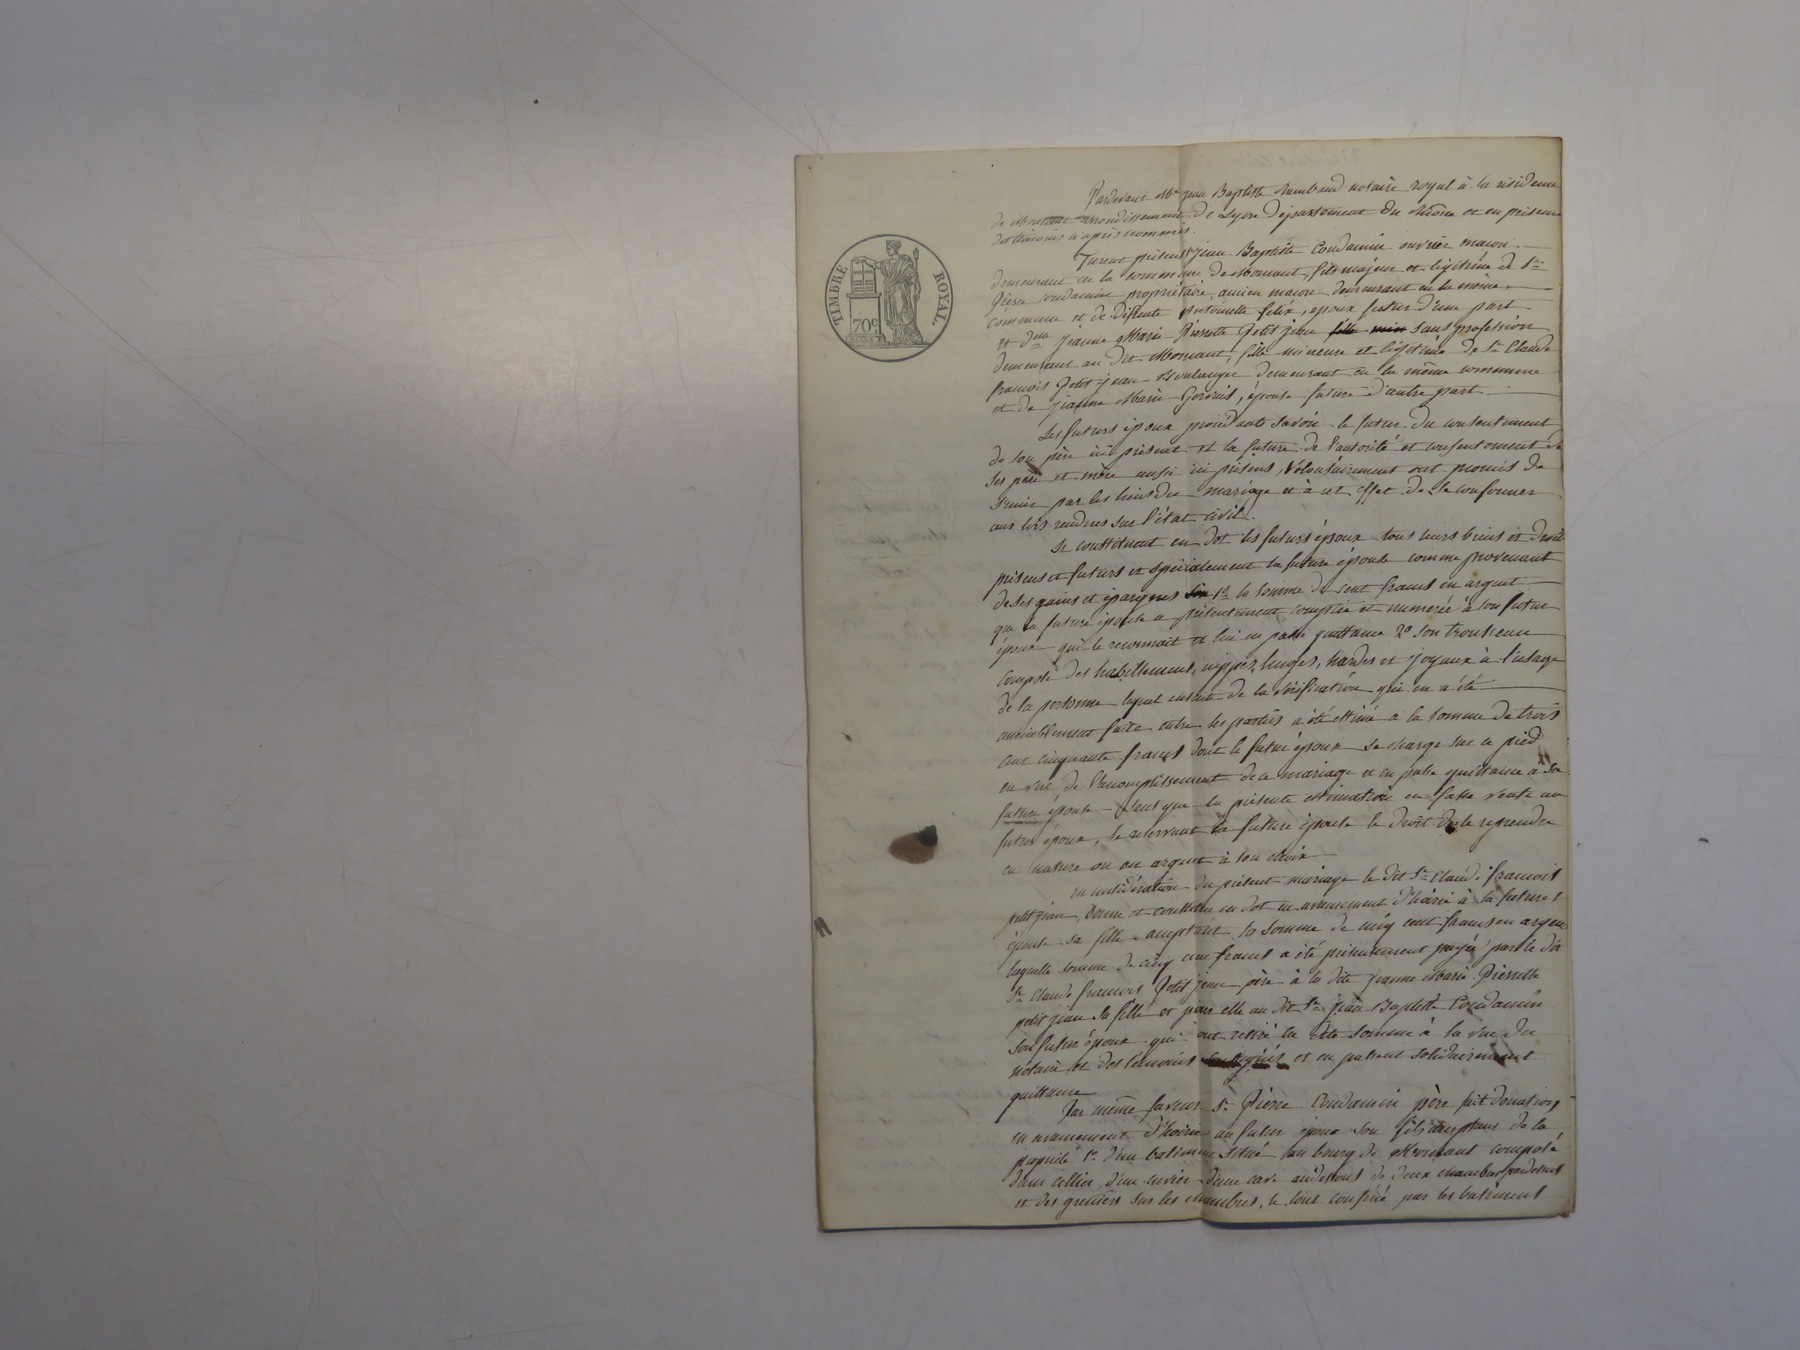 TIMBRE ROYAL.
70c
Pardevant Me Jean Baptiste notaire royal à la résidence
de Mornant arrondissement de Lyon département du Rhône et en présence
des témoins ci après nommés.
Furent présens Jean Baptiste Condamin ouvrier maçon
demeurant en la commune de Mornant, fils majeur et légitime de Sr
Pierre Condamin propriétaire, ancien maçon demeurant en la même
commune et de défunte Antoinette Félix, époux futur d'une part
et Dlle Jeanne Marie Pierrette Petitjean sans profession
demeurant au dit Mornant, fille mineure et légitime de Sr Claude
françois Petitjean Boulanger demeurant en la même commune
et de Jeanne Marie Gervais, épouse future d'autre part
Les futurs époux procédants savoir le futur du consentement
de son père ici présent et la future de l'autorité et consentement de
ses père et mère aussi ici présens, Volontairement ont promis de
s'unir par les liens du mariage et à cet effet de se conformer
aux lois rendues sur l'état civil.
Se constituent en dot les futurs époux tous leurs biens et droits
présens et futurs et spécialement la future épouse comme provenant
de ses gains et épargnes 1º la somme de cent francs en argent
que la future épouse a présentement comptée et numérée à son futur
époux qui le reconnait et lui en passe quittance 2º son trousseau
composé des habillemens, nippes, linges, hardes et joyaux à l'usage
de sa personne lequel ensuite de la vérification qui en a été
amiablement faite entre les parties a été estimé à la somme de trois
cent cinquante francs dont le futur époux se charge sur ce pied
en vue de l'accomplissement de ce mariage et en passe quittance à sa
future épouse sans que la présente estimation en fasse vente au
futur époux, se réservant la future épouse le droit de le reprendre
en nature ou en argent à son choix
en considération du présent mariage le dit Sr Claude françois
petitjean, donne et constitue en dot en avancement d'hoirie à la future
épouse sa fille acceptant la somme de cinq cent francs en argent
laquelle somme de cinq cent francs a été présentement payée par le dit
Sr Claude françois Petitjean père à la dite Jeanne Marie Pierrette
petitjean sa fille et pour elle au dit Sr Jean Baptiste Condamin
son futur époux qui ont retiré la dite somme à la vue du
notaire et des témoins et en passent solidairement
quittance
Par même faveur Sr Pierre Condamin père fait donation
en avancement d'hoirie au futur époux son fils acceptant de la
propriété 1º d'un batiment situé au bourg de Mornant composé
d'un cellier, d'un cuvier d'une cave audessous de deux chambres
et des greniers sur les chambres, le tout confiné par les batimens